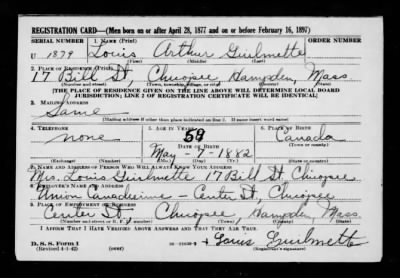 REGISTRATION CARD—(Men born on or after April 28, 1877 and on or before February 16, 1897)
SERIAL NUMBER 1. NAME (Print) ORDER NUMBER
U 1879 Louis Arthur Guilmette
(First) (Middle) (Last)
2. PLACE OF RESIDENCE (Print)
17 Bill St, Chicopee Hampden, Mass
(Number and street) (Town, township, village, or city) (County) (State)
[THE PLACE OF RESIDENCE GIVEN ON THE LINE ABOVE WILL DETERMINE LOCAL BOARD
JURISDICTION; LINE 2 OF REGISTRATION CERTIFICATE WILL BE IDENTICAL]
3. MAILING ADDRESS
Same
[Mailing address if other than place indicated on line 2. If same insert word same]
4. TELEPHONE 5. AGE IN YEARS 6. PLACE OF BIRTH
none 59 Canada
DATE OF BIRTH (Town or county)
May - 7 - 1882
(Exchange) (Number) (Mo.) (Day) (Yr.) (State or country)
7. NAME AND ADDRESS OF PERSON WHO WILL ALWAYS KNOW YOUR ADDRESS
Mrs. Louis Guilmette 17 Bill St. Chicopee
8. EMPLOYER'S NAME AND ADDRESS
Union Canadienne - Center St, Chicopee
9. PLACE OF EMPLOYMENT OR BUSINESS
Center St, Chicopee Hampden, Mass.
(Number and street or R. F. D. number) (Town) (County) (State)
I AFFIRM THAT I HAVE VERIFIED ABOVE ANSWERS AND THAT THEY ARE TRUE.
D. S. S. Form 1
(Revised 4-1-42) (over) Louis Guilmette
(Registrant's signature)